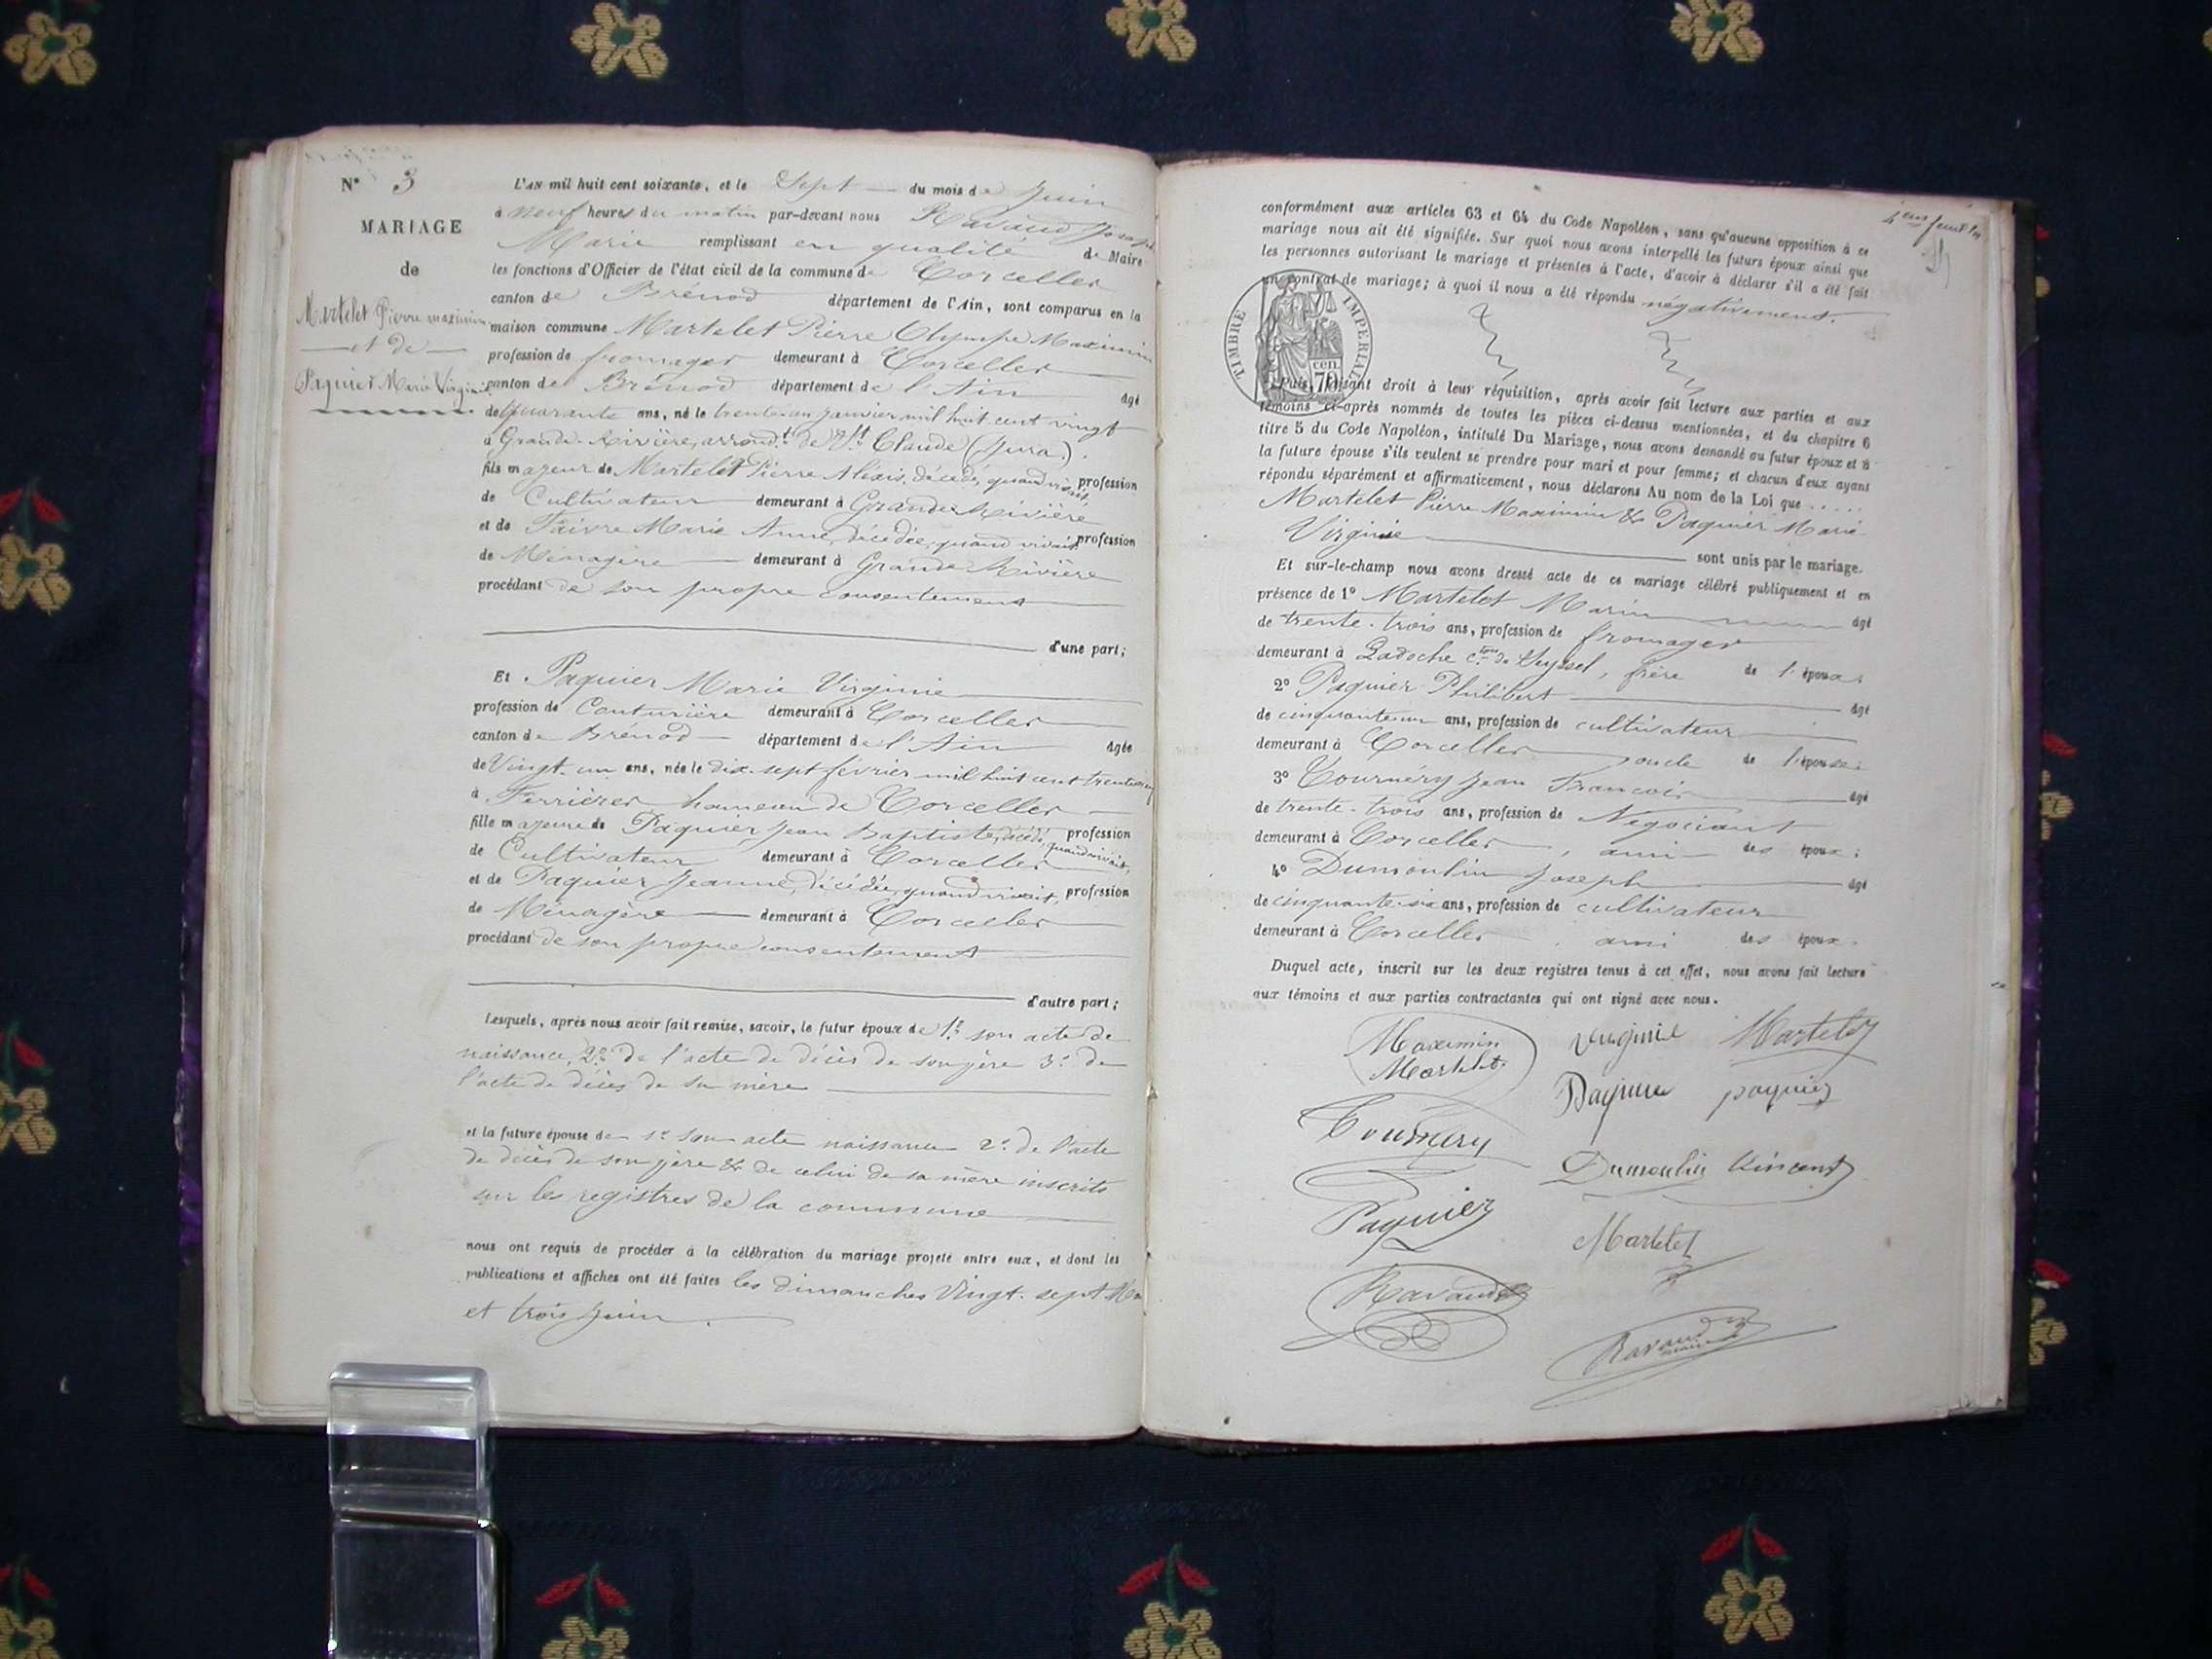 N° 3
MARIAGE
de
Martelet Pierre maximin
et de
Paquier Marie Virginie
L'AN mil huit cent soixante, et le Sept du mois de Juin
à neuf heures du matin par-devant nous Ravaud Joseph
Marie remplissant en qualité de Maire
les fonctions d'Officier de l'état civil de la commune de Corcelles
canton de Brénod département de l'Ain, sont comparus en la
maison commune Martelet Pierre Olympe Maximin
profession de fromager demeurant à Corcelles
canton de Brénod département de l'Ain âgé
de quarante ans, né le trente-un janvier mil huit cent vingt
à Grande-Rivière, arrondt de St Claude (Jura).
fils majeur de Martelet Pierre Aléxis, décédé, quand vivait, profession
de Cultivateur demeurant à Grande Rivière
et de Faivre Marie Anne, décédée, quand vivait, profession
de Ménagère demeurant à Grande Rivière
procédant de son propre consentement
d'une part;
Et Paquier Marie Virginie
profession de Couturière demeurant à Corcelles
canton de Brénod département de l'Ain âgée
de Vingt-un ans, née le dix-sept février mil huit cent trente
à Ferrières hameau de Corcelles
fille majeure de Paquier Jean Baptiste, décédé, quand vivait, profession
de Cultivateur demeurant à Corcelles
et de Paquier Jeanne, décédée, quand vivait, profession
de Ménagère demeurant à Corcelles
procédant de son propre consentement
d'autre part;
Lesquels, après nous avoir fait remise, savoir, le futur époux de 1° son acte de
naissance, 2° de l'acte de décès de son père 3° de
l'acte de décès de sa mère
et la future épouse de 1° son acte naissance 2° de l'acte
de décès de son père & de celui de sa mère inscrits
sur les registres de la commune
nous ont requis de procéder à la célébration du mariage projeté entre eux, et dont les
publications et affiches ont été faites les dimanches Vingt-sept Mai
et trois Juin.
conformément aux articles 63 et 64 du Code Napoléon, sans qu'aucune opposition à ce
mariage nous ait été signifiée. Sur quoi nous avons interpellé les futurs époux ainsi que
les personnes autorisant le mariage et présentes à l'acte, d'avoir à déclarer s'il a été fait
un contrat de mariage; à quoi il nous a été répondu négativement.
TIMBRE IMPERIAL
70 cen
Puis, faisant droit à leur réquisition, après avoir fait lecture aux parties et aux
témoins ci-après nommés de toutes les pièces ci-dessus mentionnées, et du chapitre 6
titre 5 du Code Napoléon, intitulé Du Mariage, nous avons demandé au futur époux et à
la future épouse s'ils veulent se prendre pour mari et pour femme; et chacun d'eux ayant
répondu séparément et affirmativement, nous déclarons Au nom de la Loi que .....
Martelet Pierre Maximin & Paquier Marie
Virginie sont unis par le mariage.
Et sur-le-champ nous avons dressé acte de ce mariage célébré publiquement et en
présence de 1° Martelet Marin âgé
de trente-trois ans, profession de fromager
demeurant à Ladoche cton de Seyssel, frère de l'époux;
2° Paquier Philibert âgé
de cinquante-un ans, profession de cultivateur
demeurant à Corcelles, oncle de l'épouse;
3° Tournéry Jean François âgé
de trente-trois ans, profession de Négociant
demeurant à Corcelles, ami des époux;
4° Dumoulin Joseph âgé
de cinquante-six ans, profession de cultivateur
demeurant à Corcelles, ami des époux.
Duquel acte, inscrit sur les deux registres tenus à cet effet, nous avons fait lecture
aux témoins et aux parties contractantes qui ont signé avec nous.
Maximin Virginie Martelet
Martelet
Paquier paquier
Tournéry
Dumoulin Vincent
Paquier
Martelet
Ravaud
Ravaud
maire